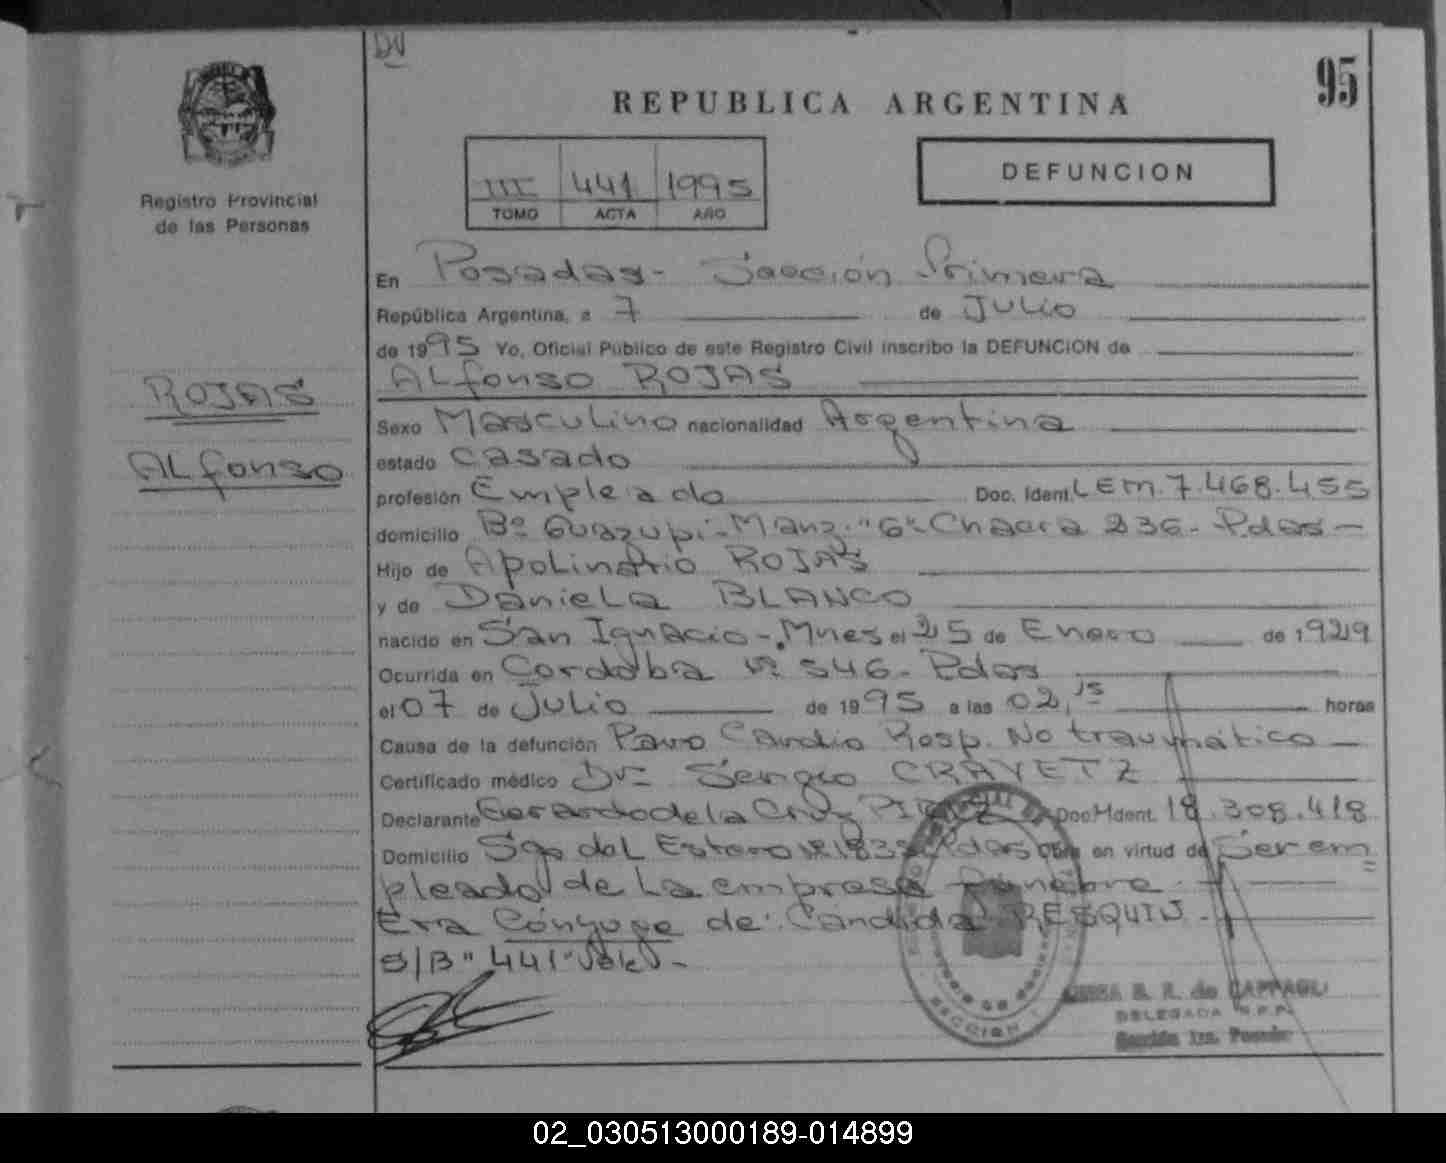 DV
95
REPUBLICA ARGENTINA
III 441 1995
TOMO ACTA AÑO
DEFUNCION
Registro Provincial
de las Personas
En Posadas - Sección Primera
República Argentina, a 7 de Julio
de 1995 Yo, Oficial Público de este Registro Civil inscribo la DEFUNCION de
ALfonso ROJAS
ROJAS
ALfonso
Sexo Masculino nacionalidad Argentina
estado Casado
profesión Empleado Doc. Ident. LEM. 7.468.455
domicilio Bº Guazupi - Manz. "G" Chacra 236 - Pdas -
Hijo de Apolinario ROJAS
y de Daniela BLANCO
nacido en San Ignacio - Mnes el 25 de Enero de 1929
Ocurrida en Cordoba Nº 546 - Pdas
el 07 de Julio de 1995 a las 02,15 horas
Causa de la defunción Paro Cardio Resp. No traumático -
Certificado médico Dr. Sergio CRAVETZ
Declarante Gerardo de la Cruz Doc. Ident. 18.308.418
Domicilio Sgo del Estero Nº Pdas en virtud de Ser em
pleado de La empresa Funebre -
Era Cónyuge de: Candida RESQUIN -
S/B "441" Vale -
SECCION 1
R. de CAPPAGLI
DELEGADA R.P.P.
Sección 1ra. Posadas
02_030513000189-014899